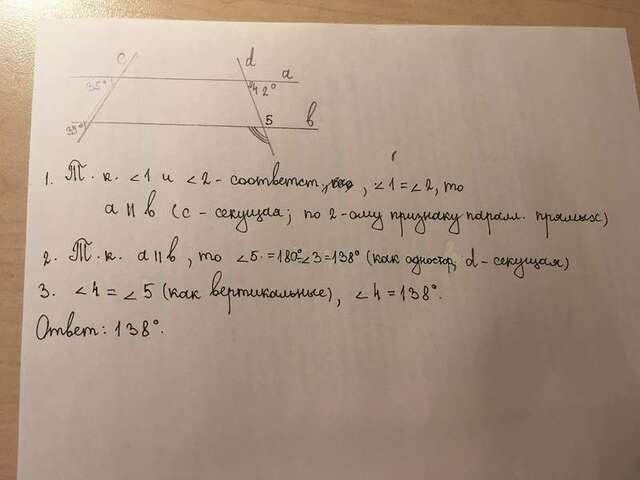 c
d
35°
35°
42°
a
5
b
1. Т.к. ∠1 и ∠2 - соответст, , ∠1=∠2, то
a || b (c - секущая; по 2-ому признаку паралл. прямых)
2. Т.к. a || b, то ∠5=180°-∠3=138° (как одностор, d - секущая)
3. ∠4=∠5 (как вертикальные), ∠4=138°.
Ответ: 138°.